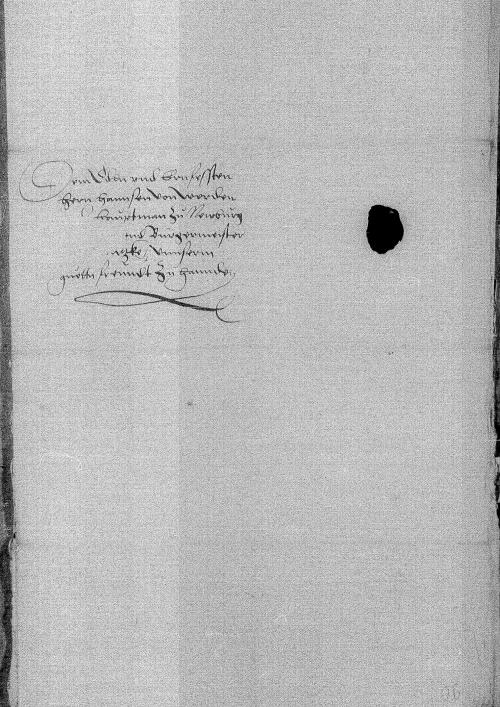 Dem Edlen und Ernfessten
Hern hannsen von werden
haubtman zu Newburg
und Burgermeister
unserm
guetten freundt zu handen
36